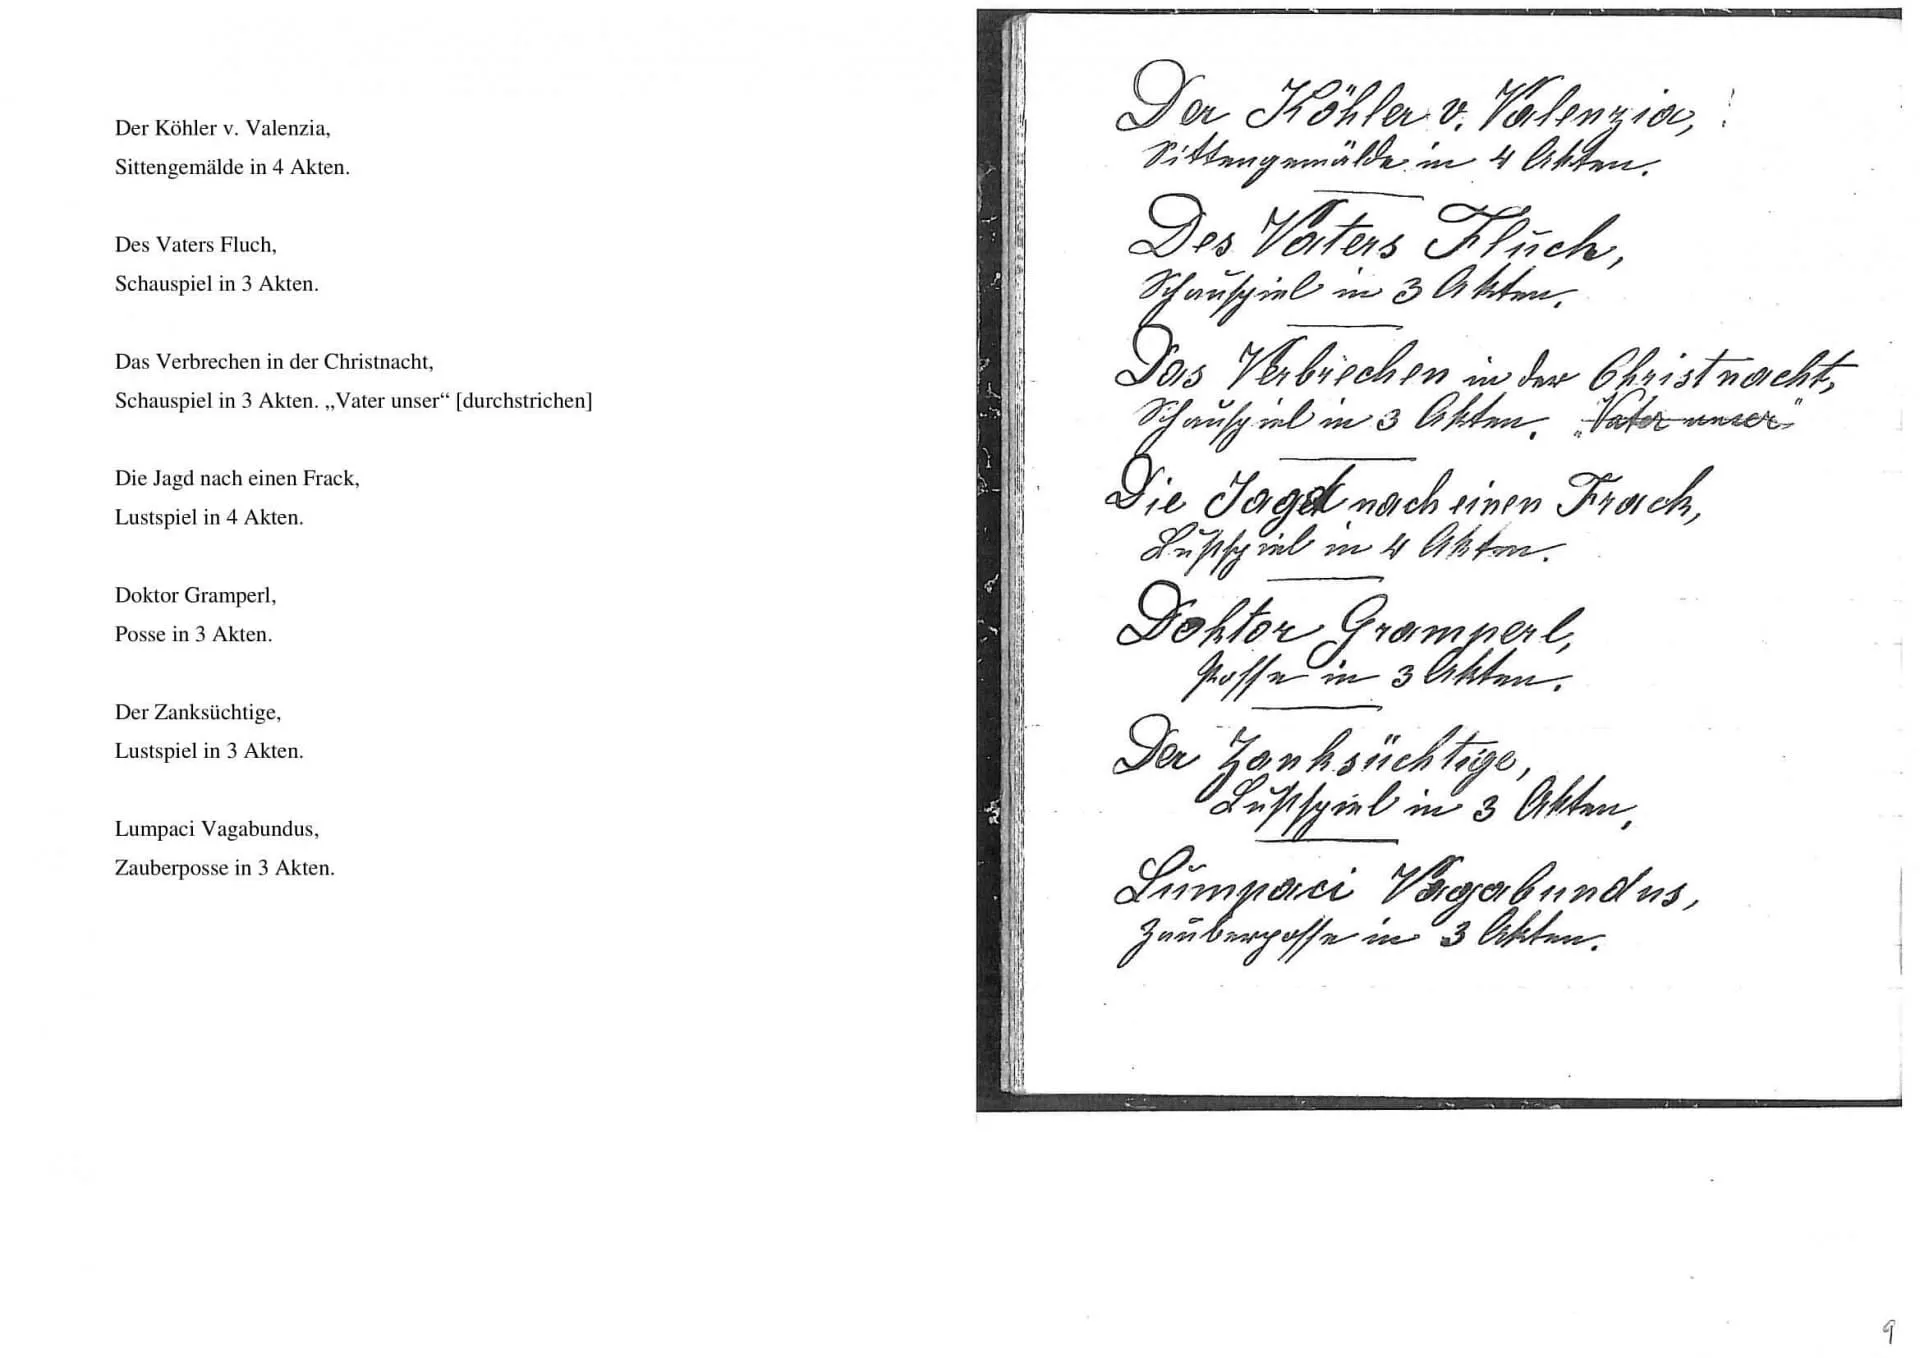 Der Köhler v. Valenzia,
Sittengemälde in 4 Akten.
Des Vaters Fluch,
Schauspiel in 3 Akten.
Das Verbrechen in der Christnacht,
Schauspiel in 3 Akten. „Vater unser“ [durchstrichen]
Die Jagd nach einen Frack,
Lustspiel in 4 Akten.
Doktor Gramperl,
Posse in 3 Akten.
Der Zanksüchtige,
Lustspiel in 3 Akten.
Lumpaci Vagabundus,
Zauberposse in 3 Akten.
Der Köhler v. Valenzia, !
Sittengemälde in 4 Akten.
Des Vaters Fluch,
Schauspiel in 3 Akten.
Das Verbrechen in der Christnacht,
Schauspiel in 3 Akten. „Vater unser"
Die Jagd nach einen Frack,
Lustspiel in 4 Akten.
Doktor Gramperl,
Posse in 3 Akten.
Der Zanksüchtige,
Lustspiel in 3 Akten,
Lumpaci Vagabundus,
Zauberposse in 3 Akten.
9